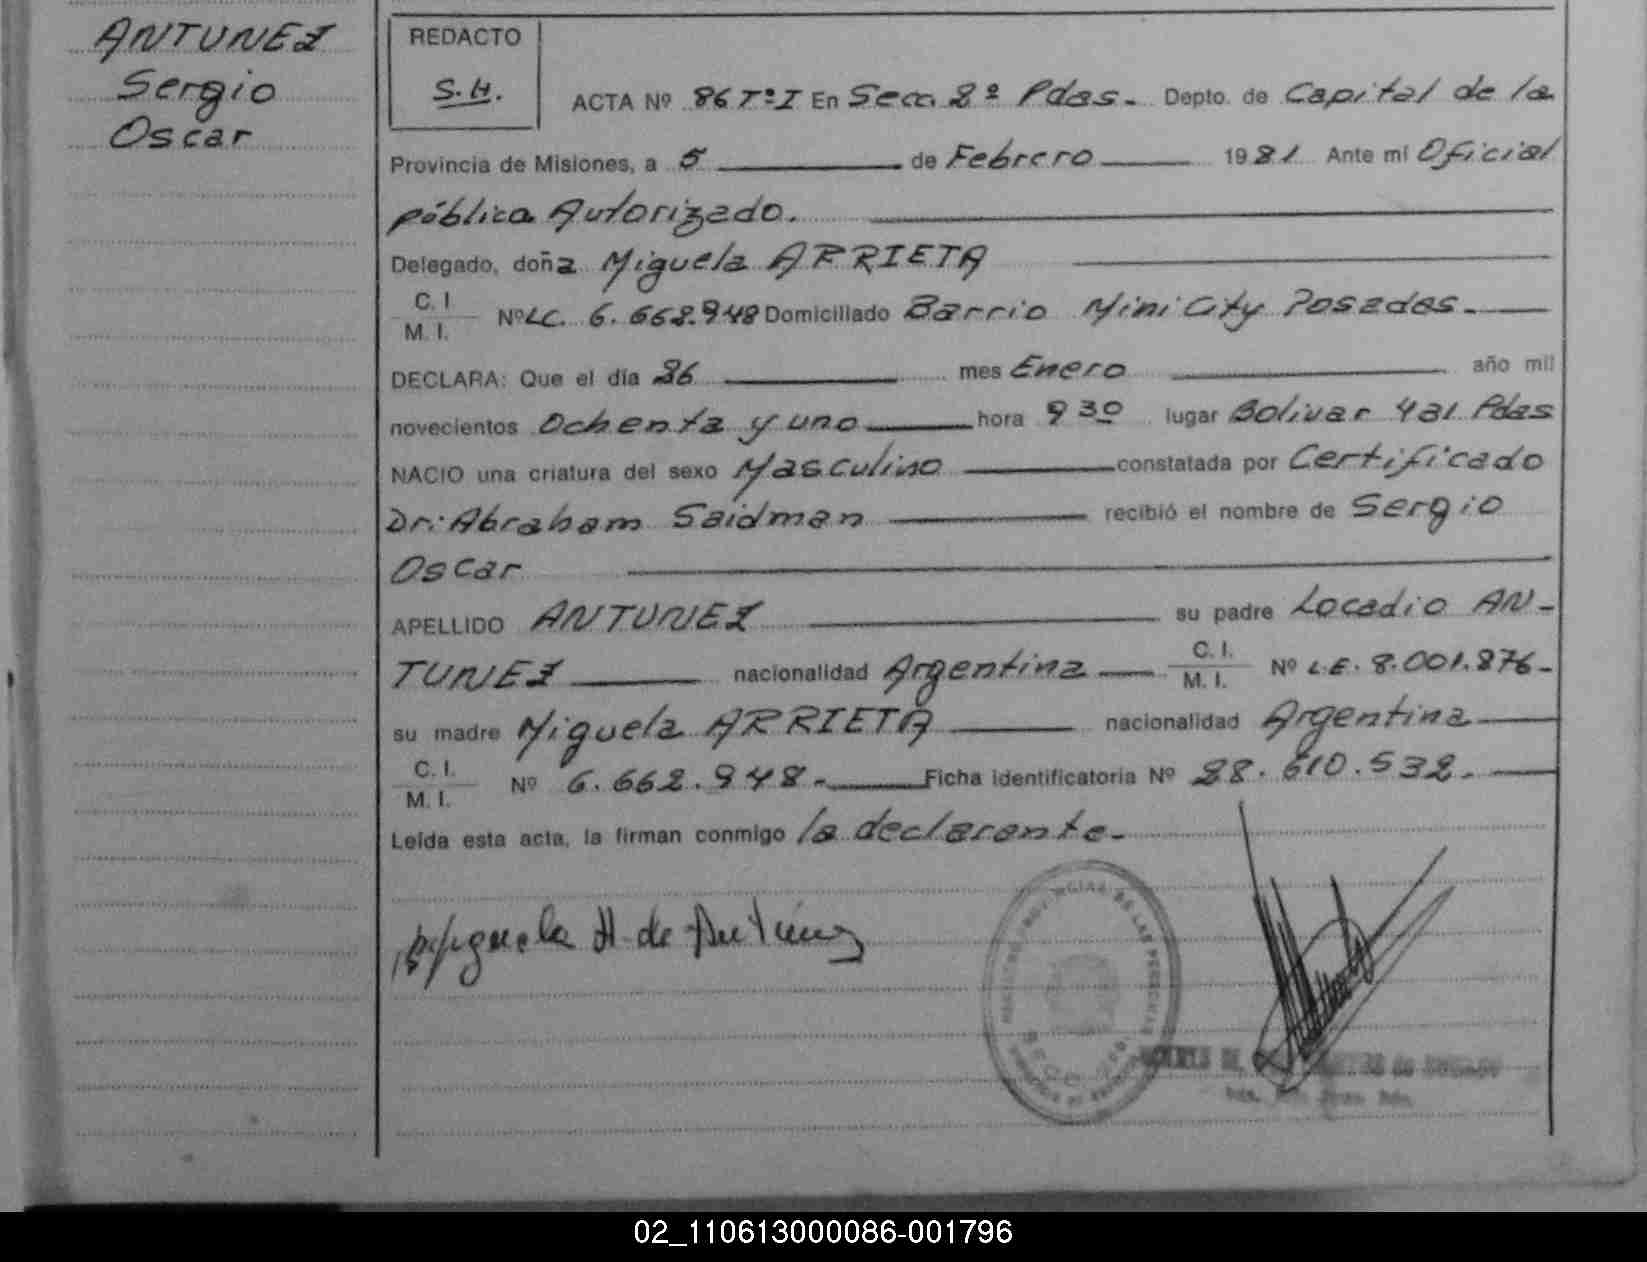 ANTUNEZ
Sergio
Oscar
REDACTO
S.H.
ACTA Nº 86 Tº I En Secc. 2ª Pdas. Depto. de Capital de la
Provincia de Misiones, a 5 de Febrero 1981 Ante mí Oficial
público Autorizado.
Delegado, doña Miguela ARRIETA
C. I.
M. I. Nº LC. 6.662.948 Domiciliado Barrio Mini City Posadas.
DECLARA: Que el día 26 mes Enero año mil
novecientos Ochenta y uno hora 9 30 lugar Bolivar 421 Pdas
NACIO una criatura del sexo Masculino constatada por Certificado
Dr. Abraham Saidman recibió el nombre de Sergio
Oscar
APELLIDO ANTUNEZ su padre Locadio AN-
TUNEZ nacionalidad Argentina C. I.
M. I. Nº L.E. 8.001.876-
su madre Miguela ARRIETA nacionalidad Argentina
C. I.
M. I. Nº 6.662.948.- Ficha identificatoria Nº 28.610.532.-
Leída esta acta, la firman conmigo la declarante.-
Miguela A. de Antunez
DE LAS PERSONAS
02_110613000086-001796